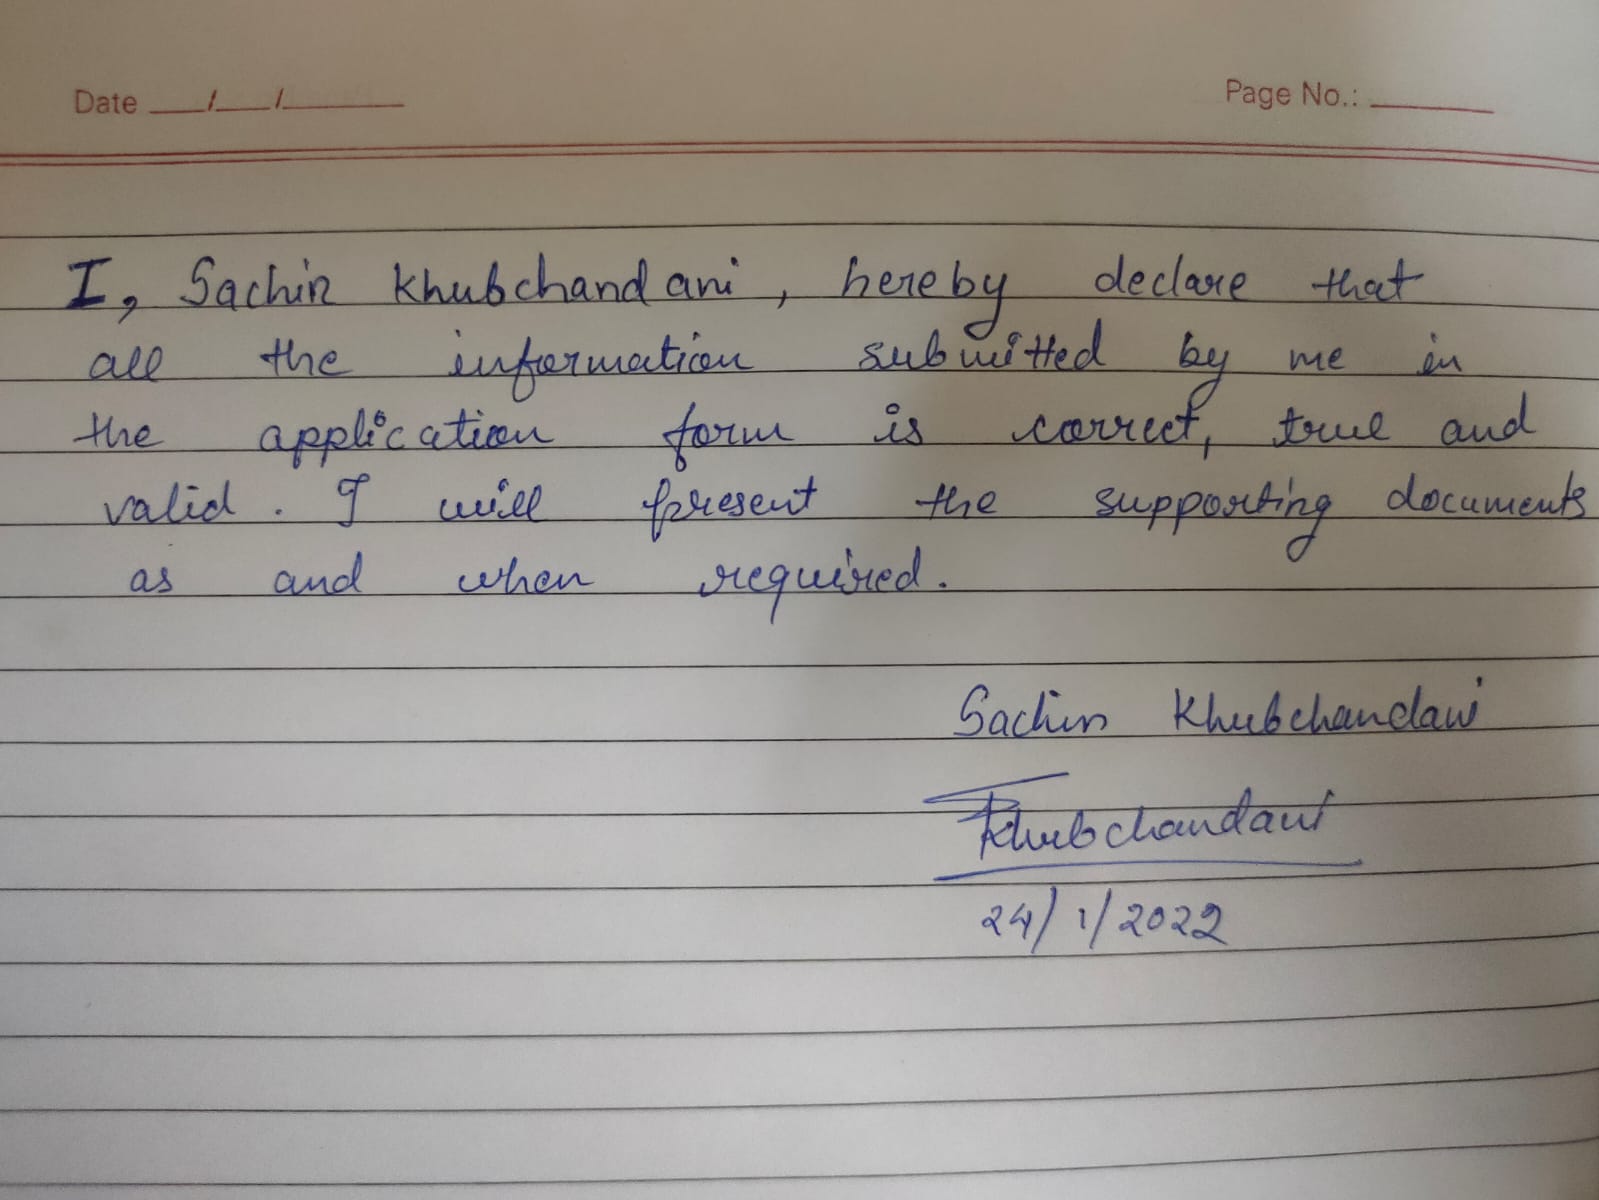 Date ___/___/______ Page No.: ______
I, Sachin Khubchandani, hereby declare that
all the information submitted by me in
the application form is correct, true and
valid. I will present the supporting documents
as and when required.
Sachin Khubchandani
Khubchandani
24/1/2022